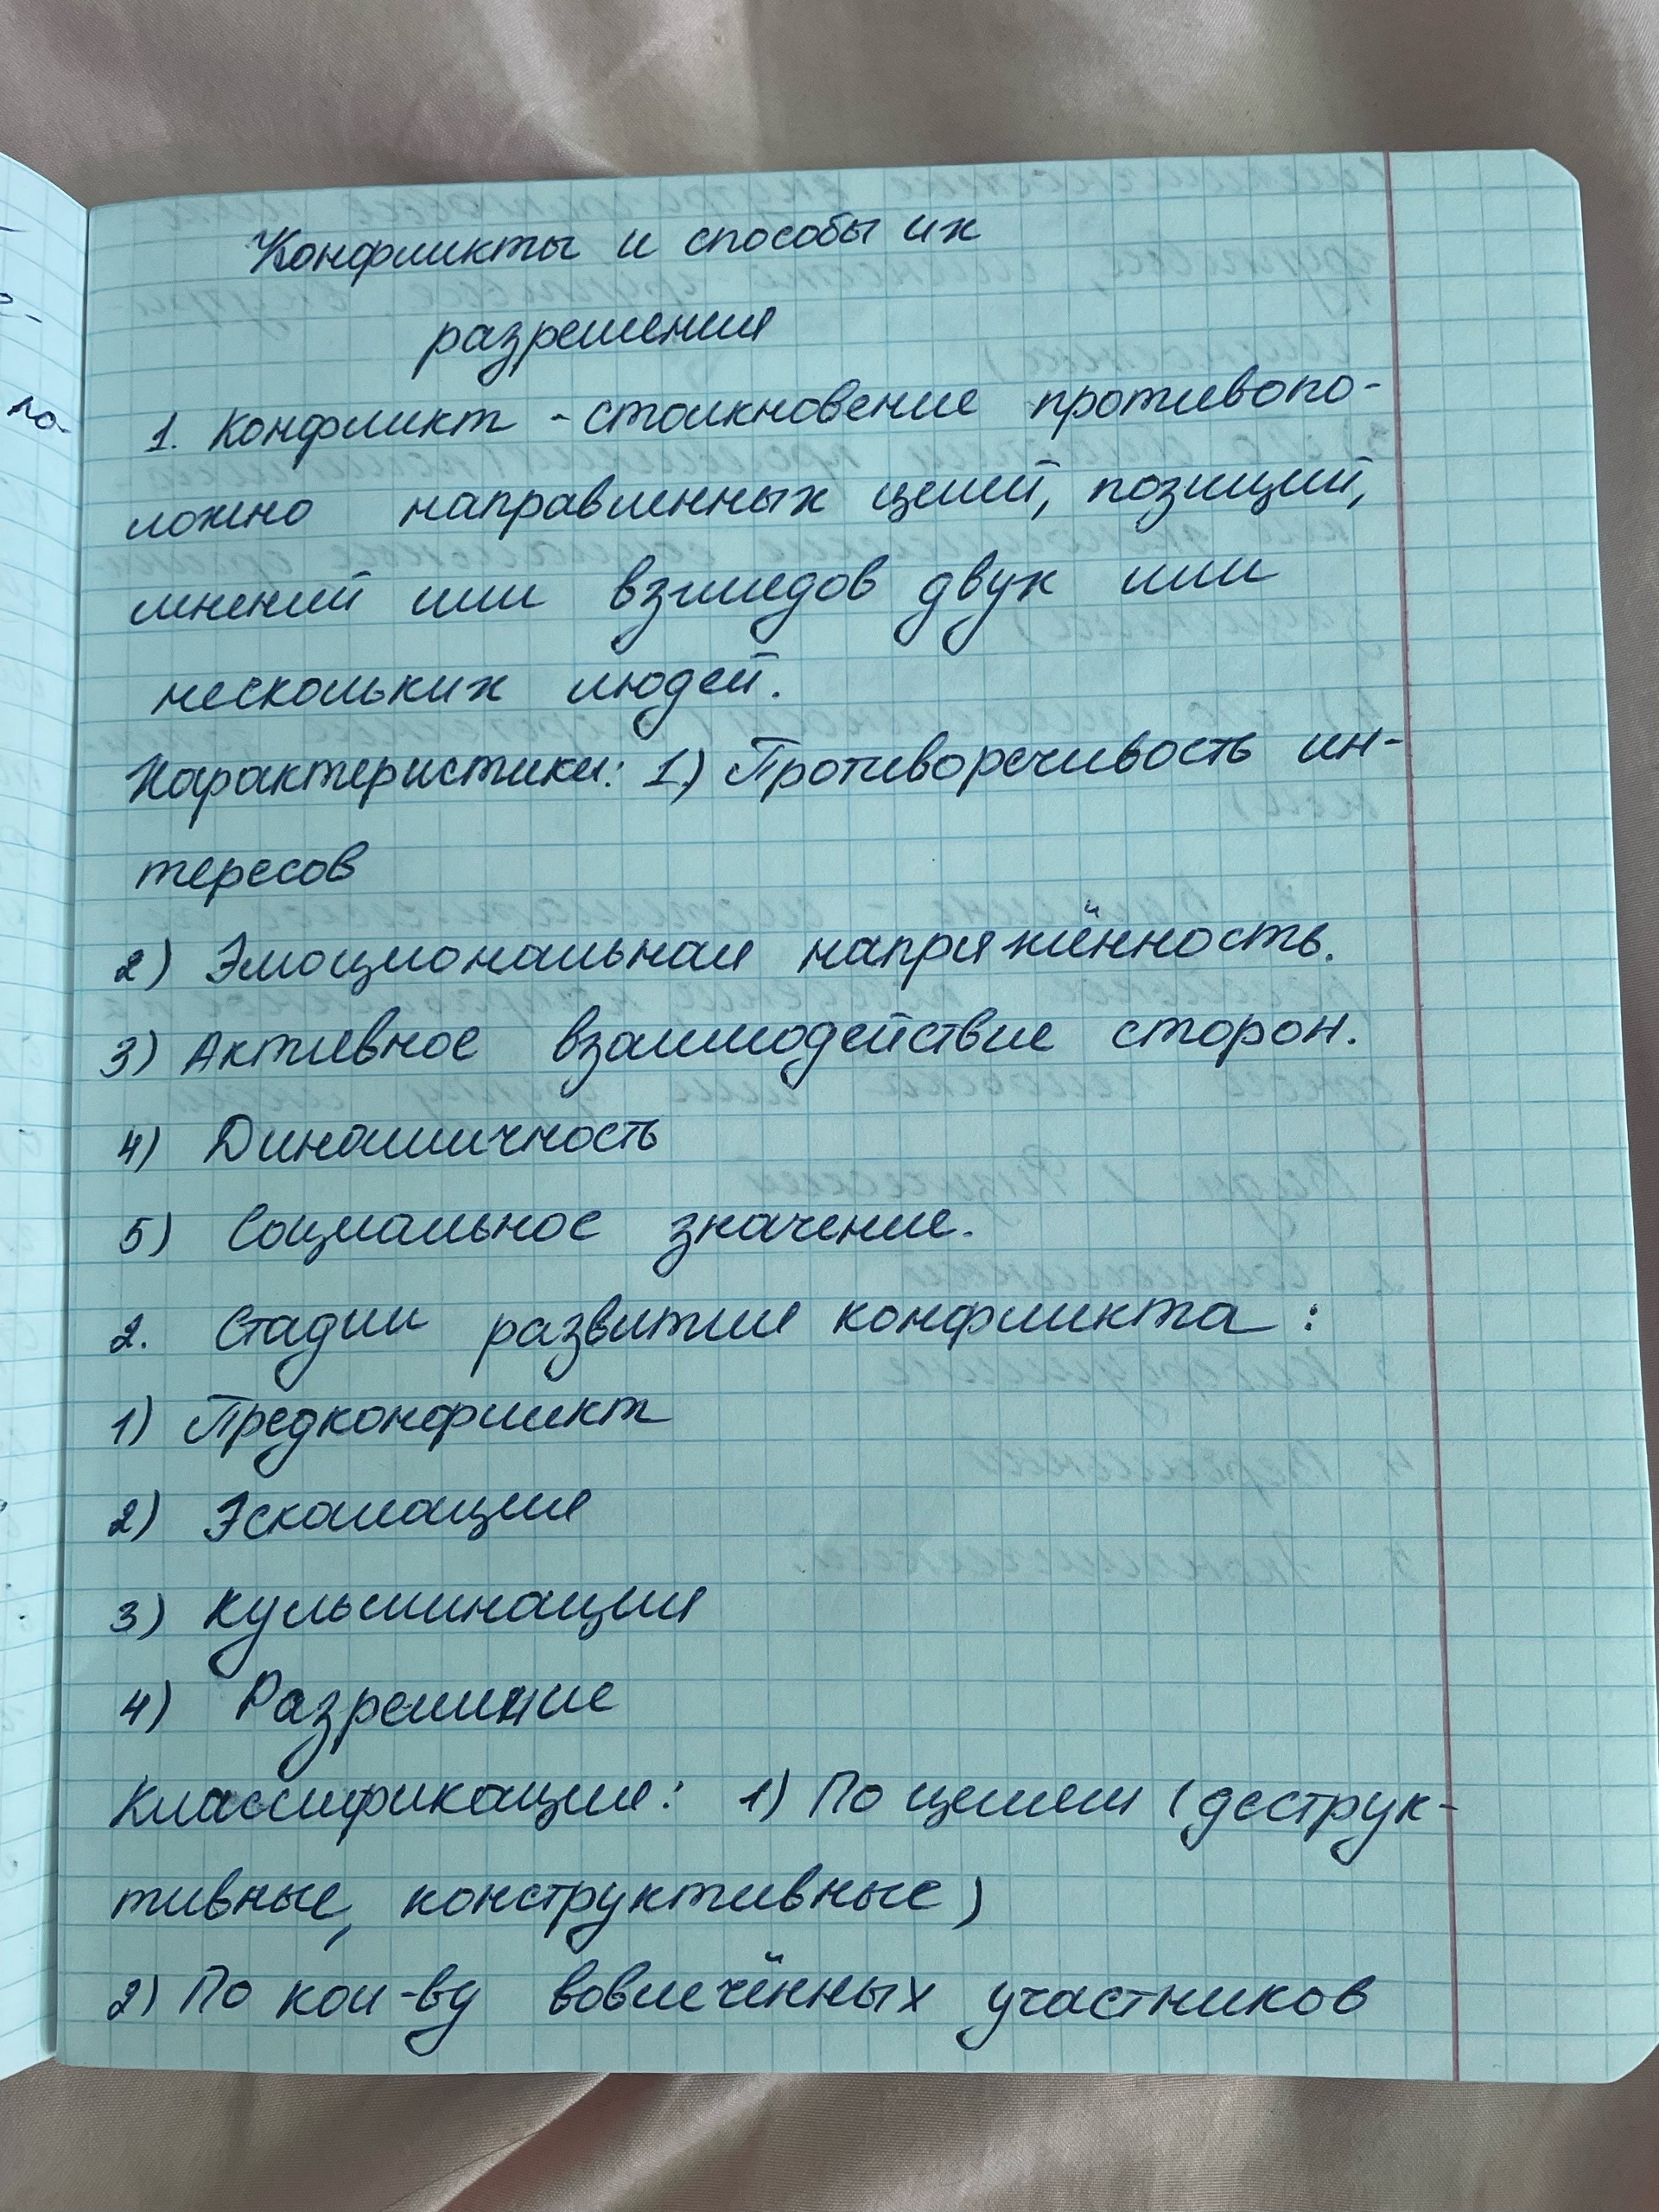 Конфликты и способы их
разрешения
1. Конфликт - столкновение противопо-
ложно направленных целей, позиций,
мнений или взглядов двух или
нескольких людей.
Характеристики: 1) Противоречивость ин-
тересов
2) Эмоциональная напряжённость.
3) Активное взаимодействие сторон.
4) Динамичность
5) Социальное значение.
2. Стадии развития конфликта:
1) Предконфликт
2) Эскалация
3) Кульминация
4) Разрешение
Классификация: 1) По целям (деструк-
тивные, конструктивные)
2) По кол-ву вовлечённых участников